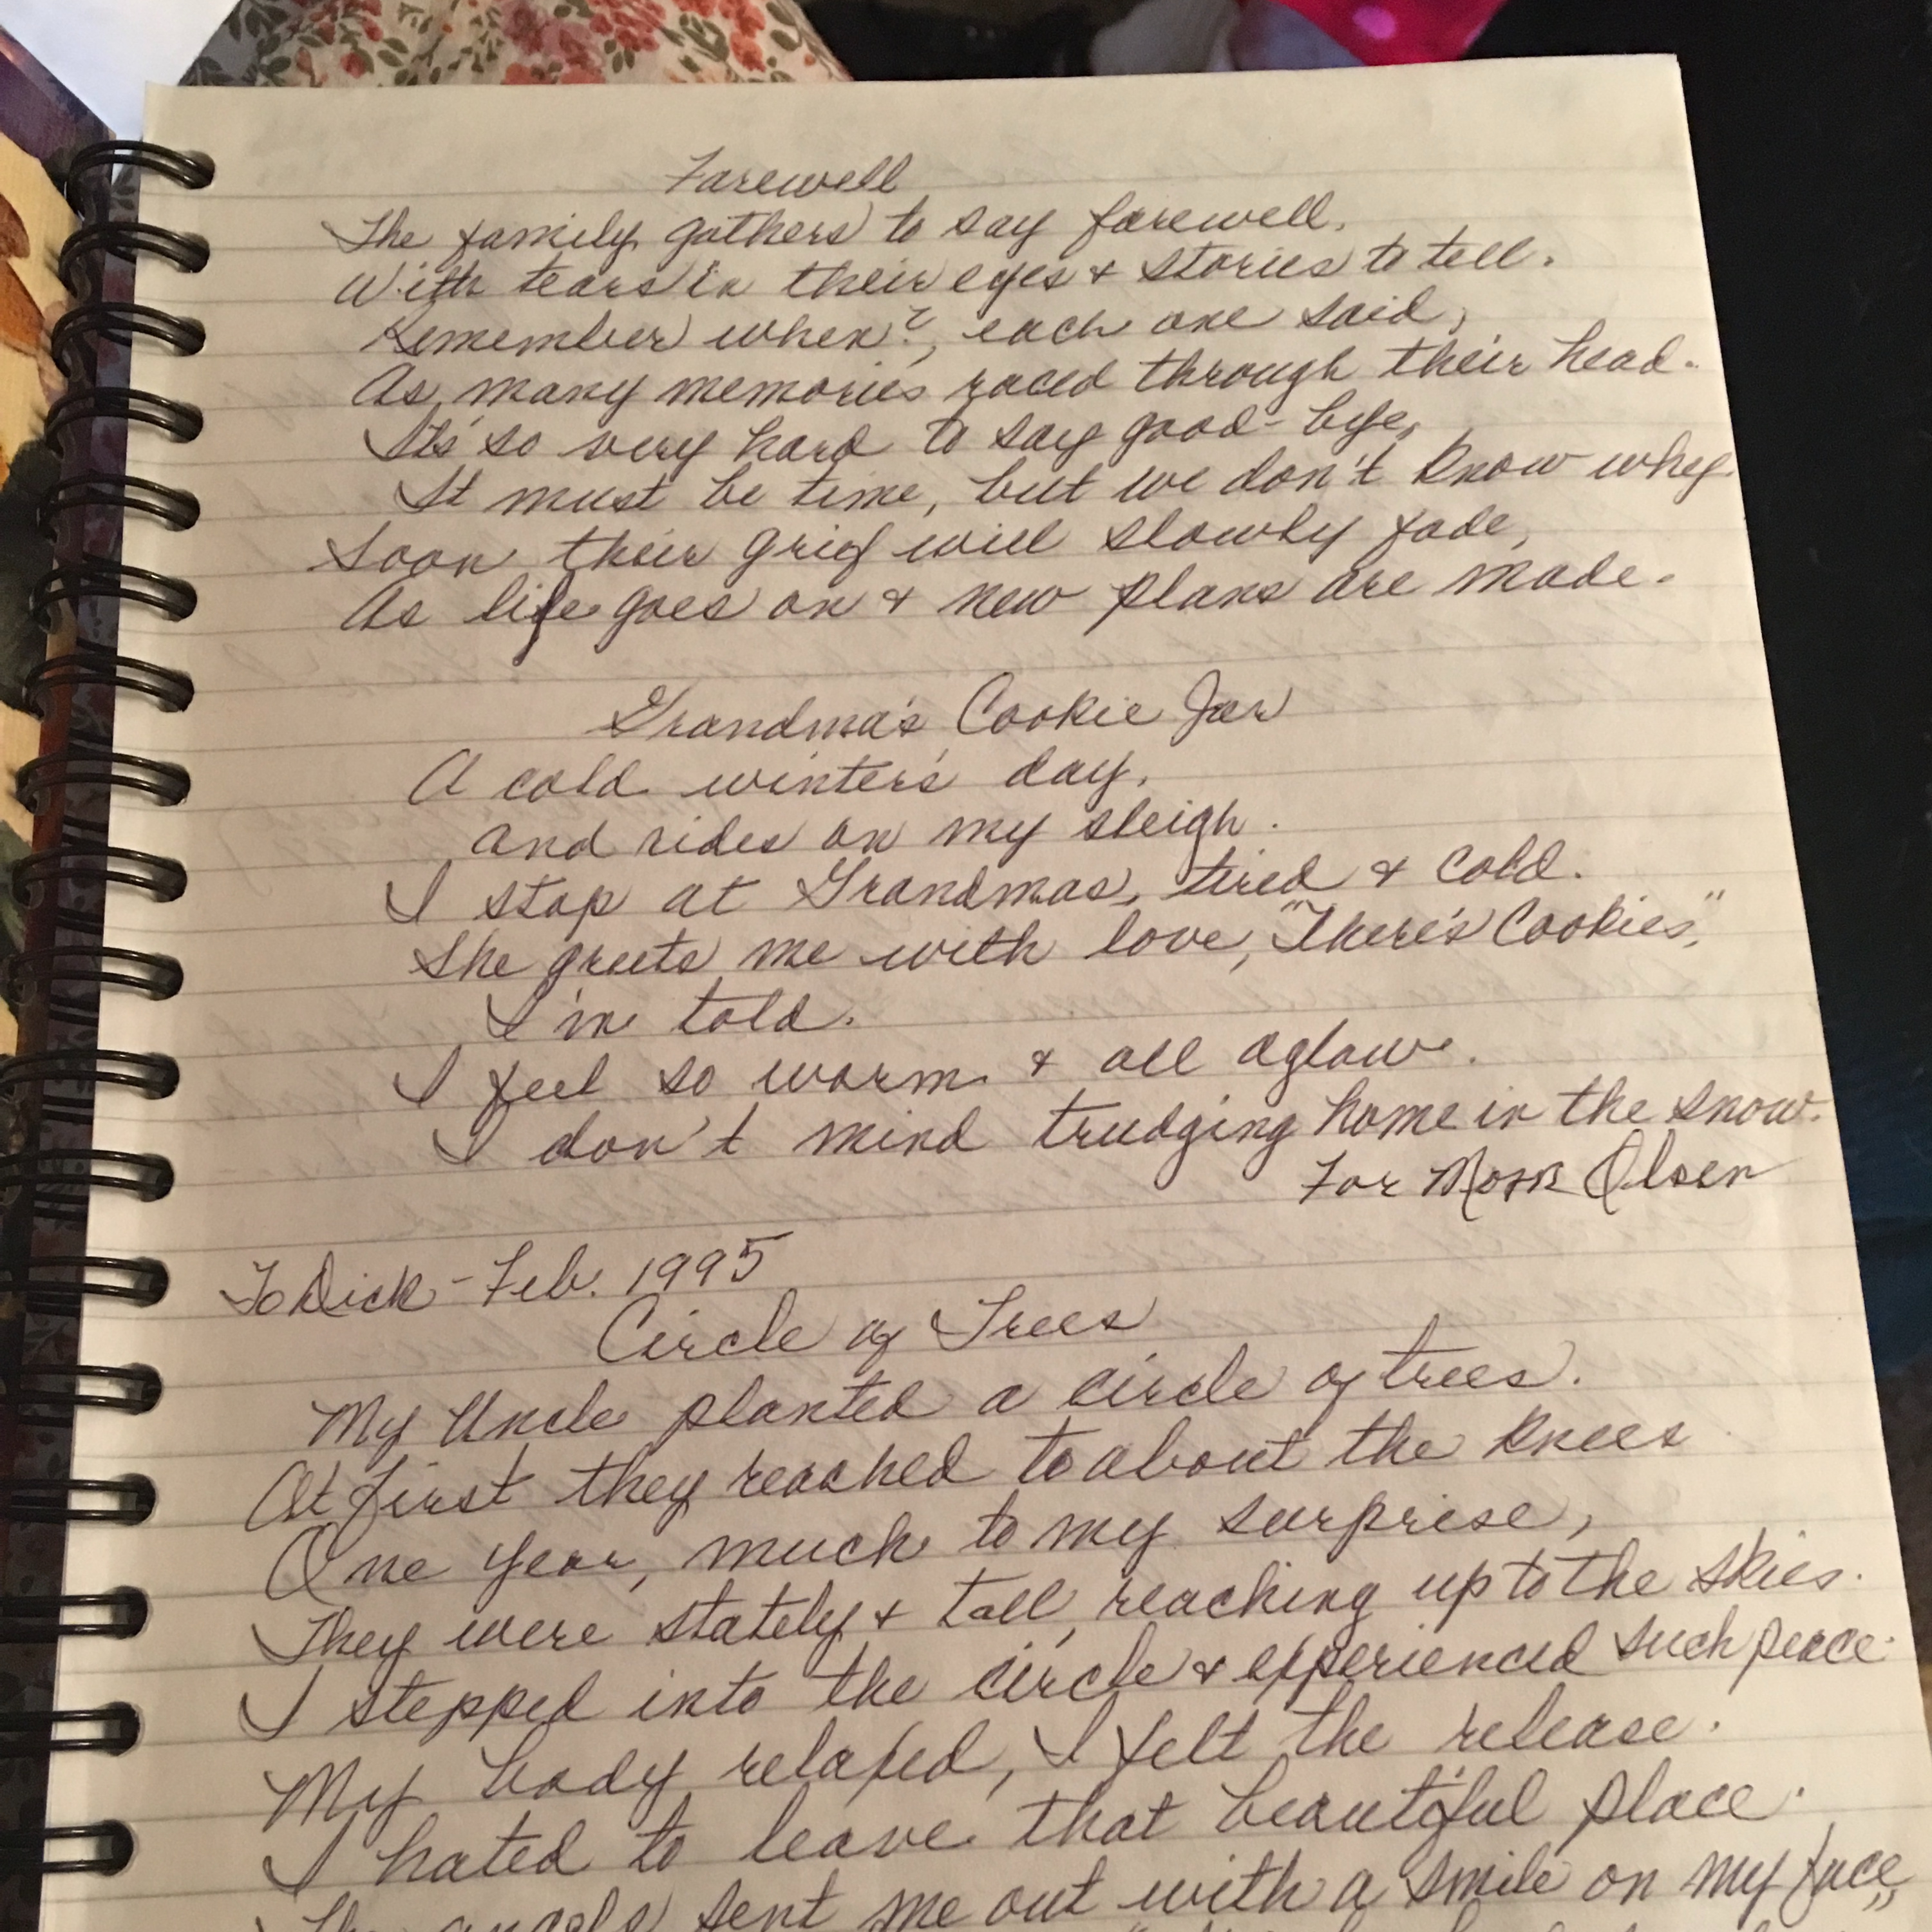 Farewell
The family gathers to say farewell,
With tears in their eyes & stories to tell.
Remember when?, each one said,
As many memories raced through their head.
It's so very hard to say good-bye,
It must be time, but we don't know why.
Soon their grief will slowly fade,
As life goes on & new plans are made.
Grandma's Cookie Jar
A cold winter's day,
and rides on my sleigh.
I stop at Grandmas, tired & cold.
She greets me with love, "There's Cookies,"
I'm told.
I feel so warm & all aglow.
I don't mind trudging home in the snow.
For Mom Olsen
To Dick - Feb. 1995
Circle of Trees
My Uncle planted a circle of trees.
At first they reached to about the knees
One year, much to my surprise,
They were stately & tall, reaching up to the skies.
I stepped into the circle & experienced such peace.
My body relaxed, I felt the release.
I hated to leave that beautiful place.
The angels sent me out with a smile on my face